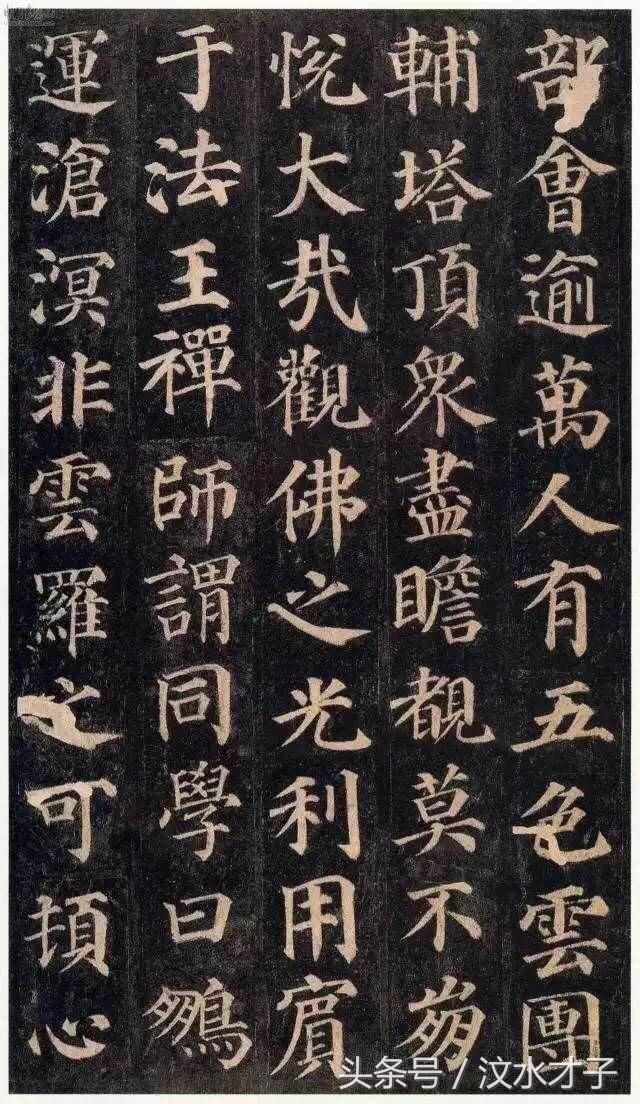 部會逾萬人有五色雲團
輔塔頂衆盡瞻覩莫不崩
悅大哉觀佛之光利用賓
于法王禪師謂同學曰鵬
運滄溟非雲羅之可頓心
头条号 / 汶水才子